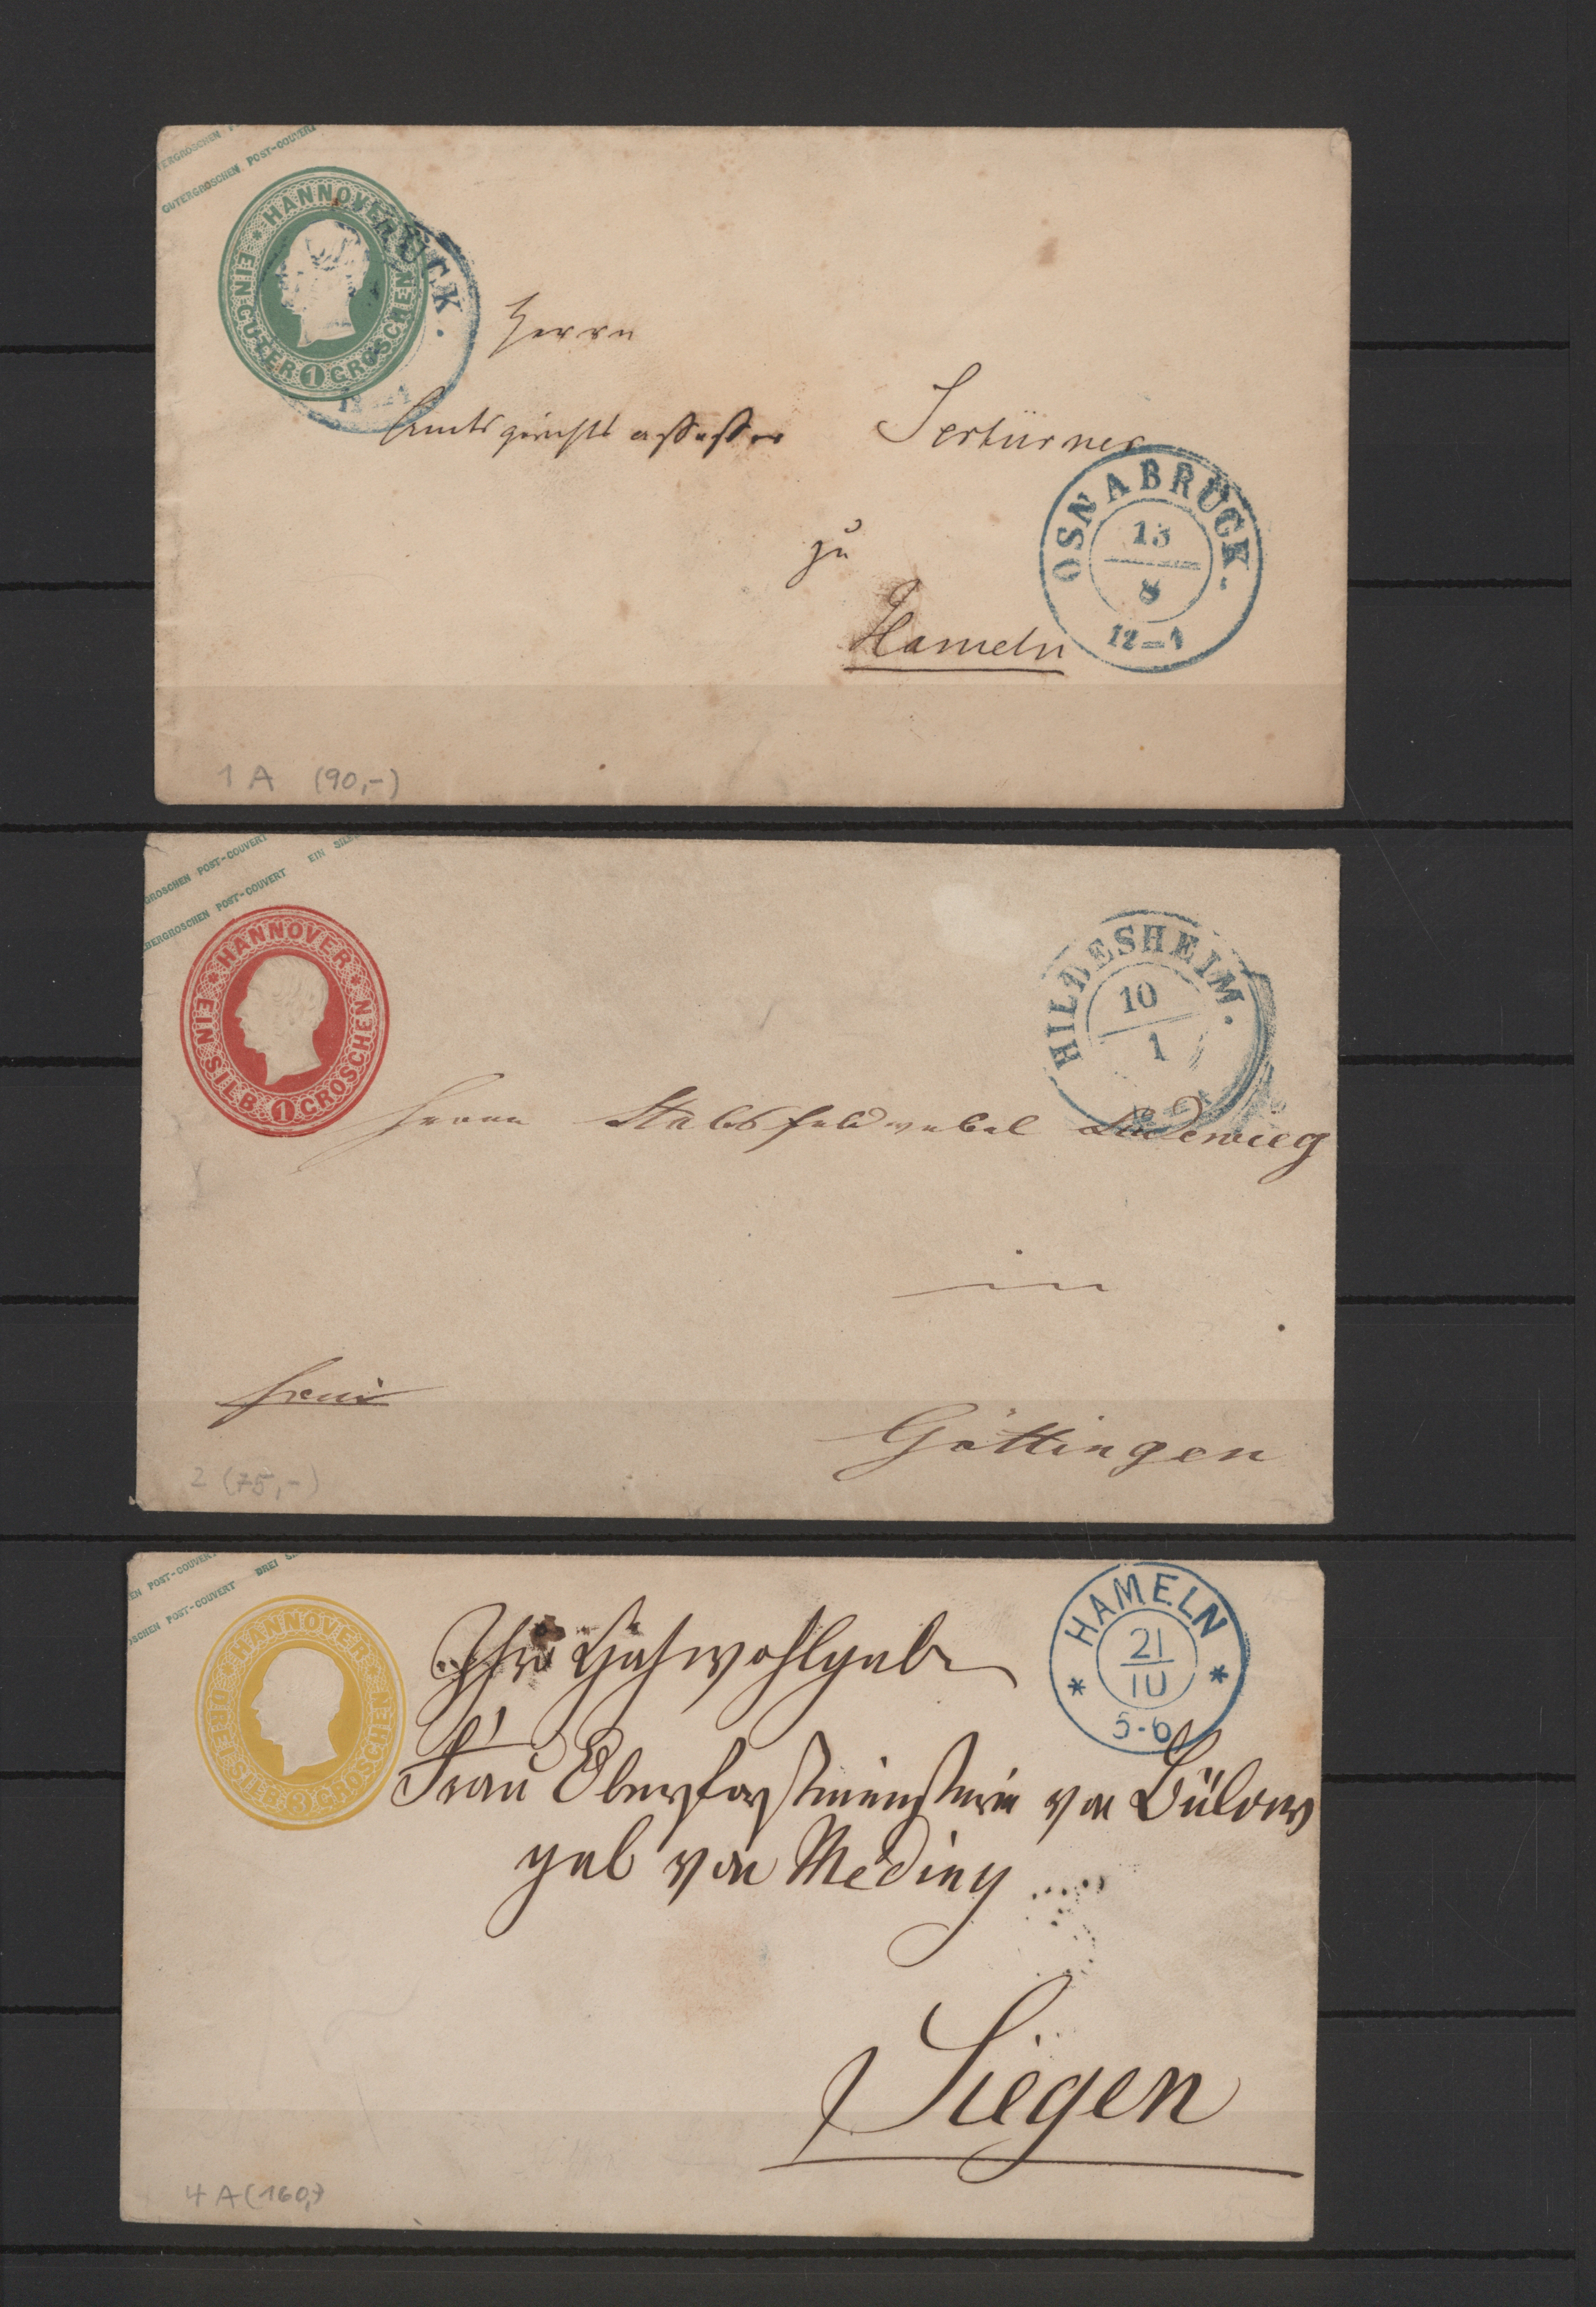 ERGROSCHEN P
GUTERGROSCHEN POST-COUVERT
* HANNOVER *
EIN GUTER 1 GROSCHEN
RÜCK.
12-1
Herrn
Amtsgerichts assessor Sertürner
OSNABRÜCK.
13
8
12-1
zu
Hameln
1 A (90,-)
GROSCHEN POST-COUVERT EIN SILB
BERGROSCHEN POST-COUVERT
* HANNOVER *
EIN SILB. 1 GROSCHEN
HILDESHEIM.
10
1
Herrn Stabsfeldwebel Ludewieg
in
frei
Göttingen
2 (75,-)
EN POST-COUVERT DREI S
SCHEN POST-COUVERT
* HANNOVER *
DREI SILB. 3 GROSCHEN
* HAMELN *
21
10
5-6
Hochwohlgeb
Frau Oberforstmeisterin von Bülow
geb von Meding
Siegen
4 A (160,-)